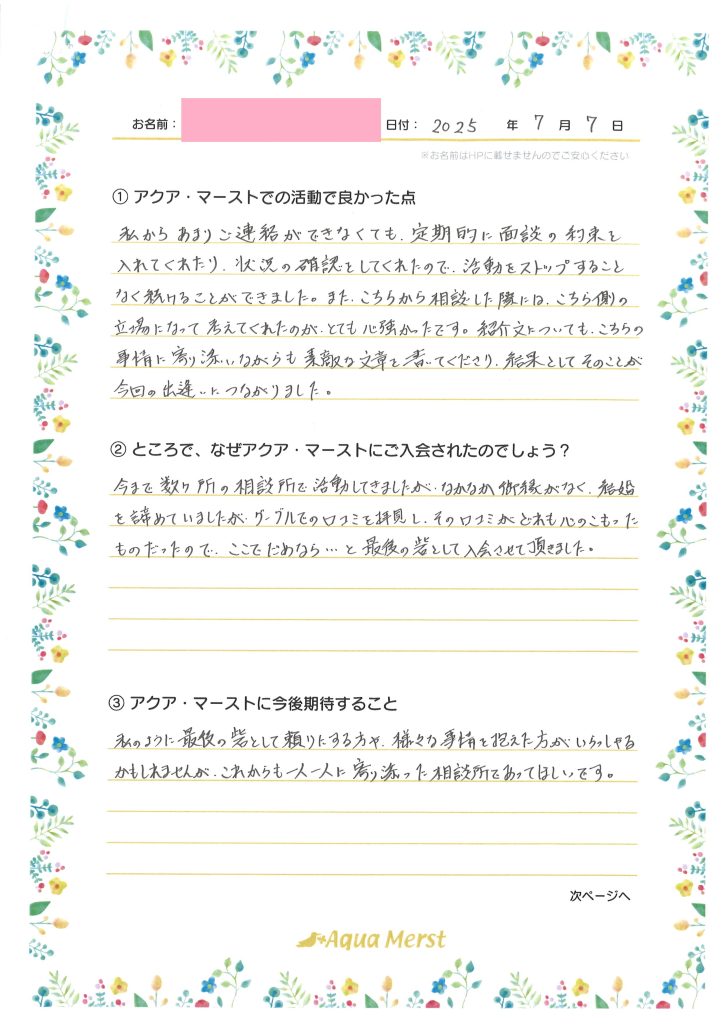 お名前：
日付： 2025 年 7 月 7 日
※お名前はHPに載せませんのでご安心ください
① アクア・マーストでの活動で良かった点
私からあまりご連絡ができなくても、定期的に面談の約束を
入れてくれたり、状況の確認をしてくれたので、活動をストップすること
なく続けることができました。また、こちらから相談した際には、こちら側の
立場になって考えてくれたのが、とても心強かったです。紹介文についても、こちらの
事情に寄り添いながらも素敵な文章を書いてくださり、結果としてそのことが
今回の出逢いにつながりました。
② ところで、なぜアクア・マーストにご入会されたのでしょう？
今まで数ヶ所の相談所で活動してきましたが、なかなか御縁がなく、結婚
を諦めていましたが、グーグルでの口コミを拝見し、その口コミがどれも心のこもった
ものだったので、ここでだめなら…と最後の砦として入会させて頂きました。
③ アクア・マーストに今後期待すること
私のように最後の砦として頼りにする方や、様々な事情を抱えた方がいらっしゃる
かもしれませんが、これからも一人一人に寄り添った相談所であってほしいです。
次ページへ
Aqua Merst